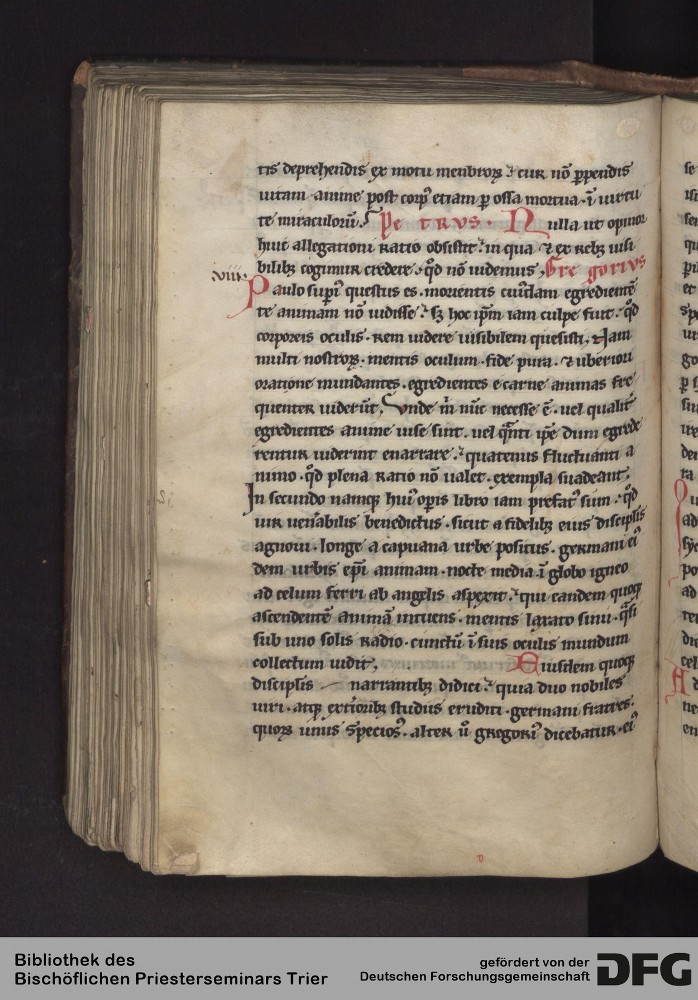 tis deprehendis ex motu menbroꝝ ⁊ cur nō ꝑpendis
uitam anime post corpꝰ etiam ꝑ ossa mortua · ī uirtu
te miraculorū. Pe trvs. Nulla ut opinor
huic allegationi ratio obsistit · in qua ⁊ ex rebꝫ uisi
bilibꝫ cogimur credere · qd̄ nō uidemus, Gre gorivs
.viii.
Paulo supꝰi questus es · morientis cuiꝰdam egrediente
te animam nō uidisse · sꝫ hoc ip̄m iam culpe fuit · qd̄
corporeis oculis · rem uidere uisibilem quesisti, Nam
multi nostroꝝ · mentis oculum · fide pura · ⁊ uberiori
oratione mundantes · egredientes e carne animas fre
quenter uiderūt, Vnde m̄ nūc necesse ē · uel qualitꝰ
egredientes anime uise sint · uel qͣnti ip̄e dum egrede
rentur uiderint enarrare · quatenus fluctuanti a
nimo · qd̄ plena ratio nō ualet · exempla suadeant,
In secundo namqꝫ huiꝰ opis libro iam prefatꝰ sum · qd̄
uir uen̄abilis benedictus · sicut a fidelibꝫ eius discipłis
agnoui · longe a capuana urbe positus · germani eiꝰ
dem urbis ep̄i animam · nocte media · ī globo igneo
ad celum ferri ab angelis aspexit · qui eandem quoqꝫ
ascendentē animā intuens · mentis laxato sinu · qͣsi
sub uno solis radio · cunctū ī suis oculis mundum
collectum uidit, Eiusdem quoqꝫ
discipłis narrantibꝫ didici · quia duo nobiles
uiri · atqꝫ exꝰioribꝫ studiis eruditi · germani fratres ·
quoꝝ unus speciosꝰ · alter ū gregoriꝰ dicebatur · eiꝰ
Bibliothek des
Bischöflichen Priesterseminars Trier
gefördert von der
Deutschen Forschungsgemeinschaft
DFG